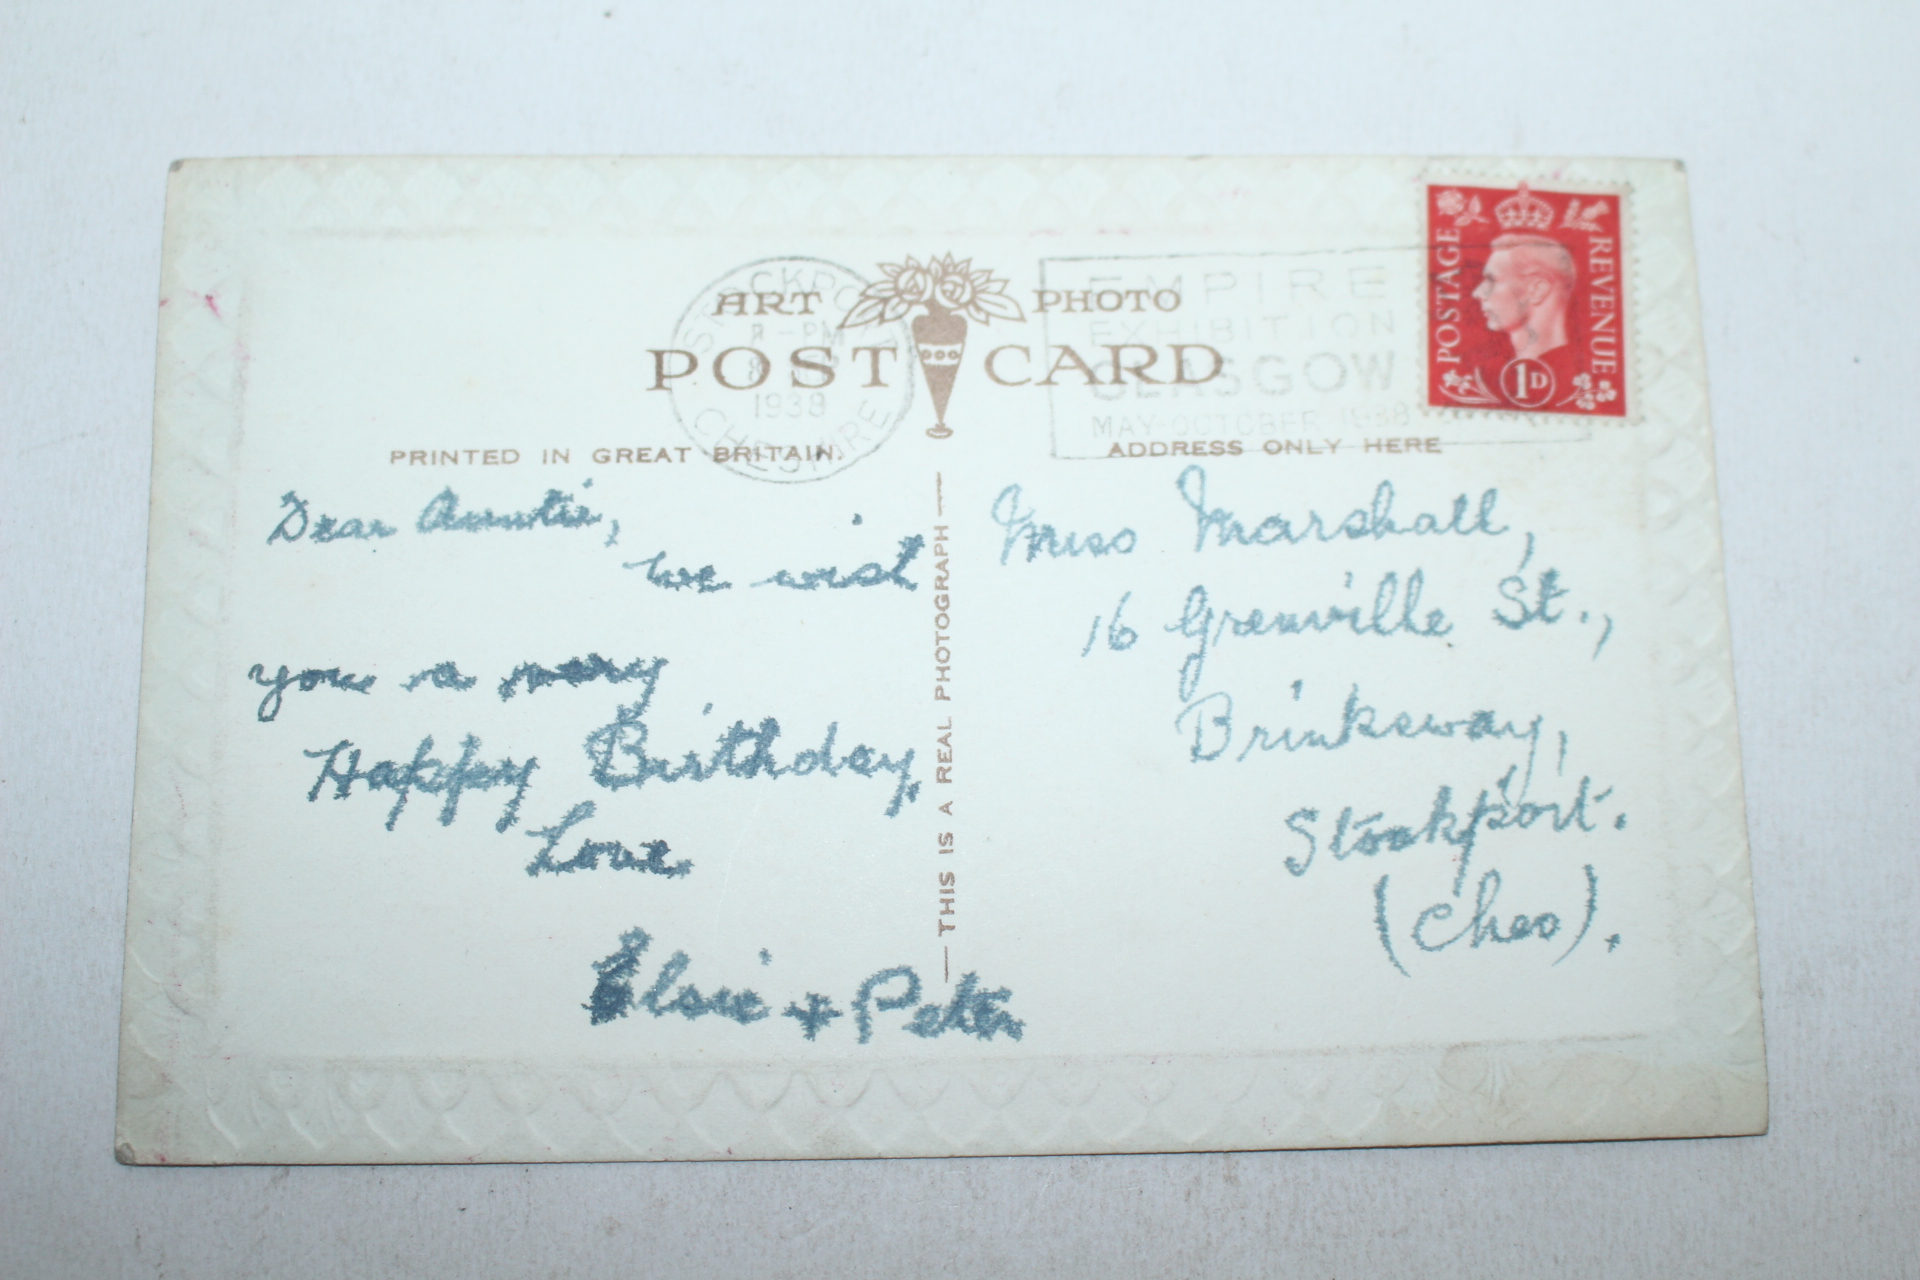 ART PHOTO
POST CARD
PRINTED IN GREAT BRITAIN.
ADDRESS ONLY HERE
STOCKPORT
-PM
8
CHESHIRE
EMPIRE
EXHIBITION
GLASGOW
MAY-OCTOBER 1938
POSTAGE
REVENUE
1D
Dear Auntie,
we wish
you a very
Happy Birthday.
Love
Elsie + Peter
— THIS IS A REAL PHOTOGRAPH —
Miss Marshall,
16 Grenville St.,
Brinksway,
Stockport.
(Ches).